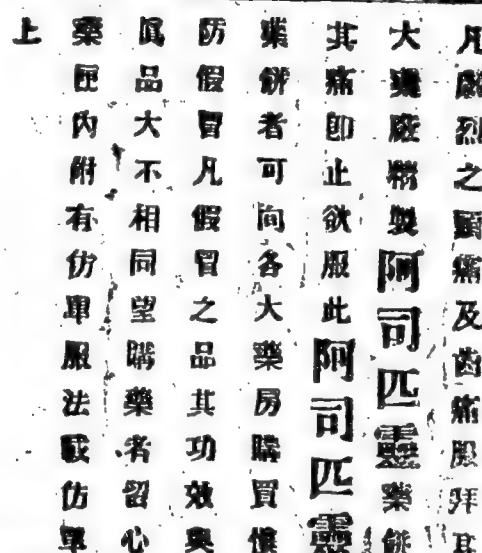 凡劇烈之頭痛及齒痛服拜耳
大藥廠精製阿司匹靈藥餅
其痛卽止欲服此阿司匹靈
藥餅者可向各大藥房購買愼
防假冒凡假冒之品其功效與
眞品大不相同望購藥者留心
藥匣內附有仿單服法載仿單
上